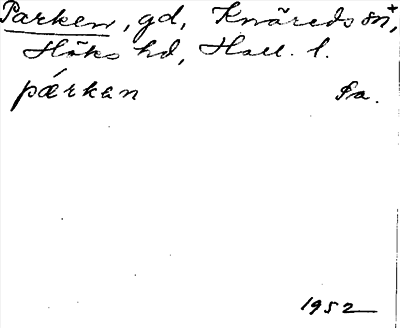 Parken, gd, Knäreds sn+,
Höks hd, Hall. l.
pǽrkan fa.
1952